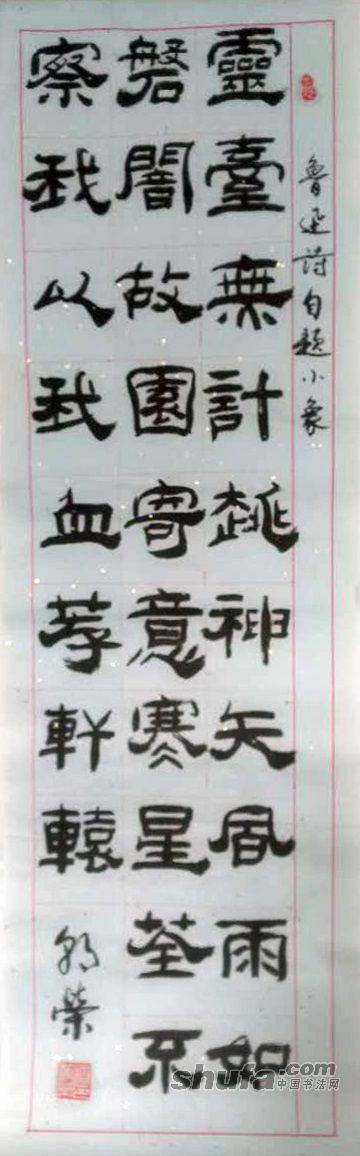 魯迅诗自題小象
靈臺無計逃神矢風雨如
磐闇故園寄意寒星荃不
察我以我血荐軒轅
榮
shufa.com
中国书法网